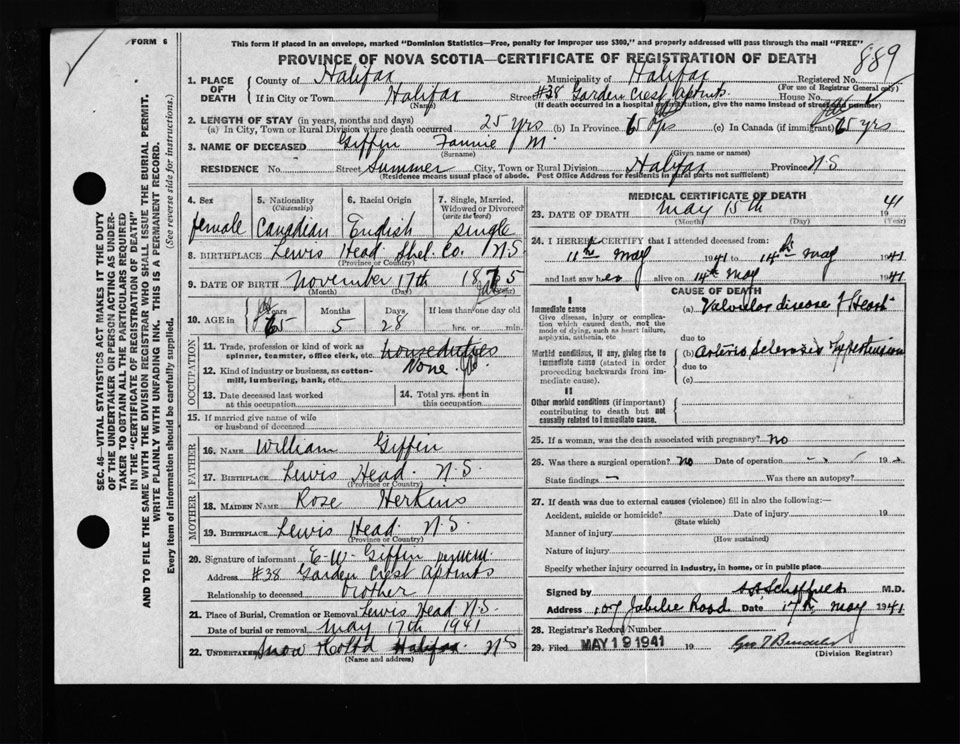 FORM 6
This form if placed in an envelope, marked "Dominion Statistics—Free, penalty for improper use $300," and properly addressed will pass through the mail "FREE"
PROVINCE OF NOVA SCOTIA—CERTIFICATE OF REGISTRATION OF DEATH
889
1. PLACE OF DEATH
County of Halifax Municipality of Halifax Registered No.
(For use of Registrar General only)
If in City or Town Halifax Street #38 Garden Crest Aptmts. House No.
(Name) (If death occurred in a hospital or institution, give the name instead of street and number)
2. LENGTH OF STAY (in years, months and days)
(a) In City, Town or Rural Division where death occurred 25 yrs (b) In Province 65 yrs (c) In Canada (if immigrant) 65 yrs
3. NAME OF DECEASED Giffin Fannie M.
(Surname) (Given name or names)
RESIDENCE No. Street Summer City, Town or Rural Division Halifax Province N.S
(Residence means usual place of abode. Post Office Address for residents in rural parts not sufficient)
4. Sex female
5. Nationality (Citizenship) Canadian
6. Racial Origin English
7. Single, Married, Widowed or Divorced (write the word) single
8. BIRTHPLACE Lewis Head Shel. Co. N.S.
(Province or Country)
9. DATE OF BIRTH November 17th 1875
(Month) (Day) (Year)
10. AGE in Years 65 Months 5 Days 28 If less than one day
hrs. or min.
OCCUPATION
11. Trade, profession or kind of work as spinner, teamster, office clerk, etc. houseduties
12. Kind of industry or business, as cotton-mill, lumbering, bank, etc. None
13. Date deceased last worked at this occupation
14. Total yrs. spent in this occupation
15. If married give name of wife or husband of deceased
FATHER
16. NAME William Giffin
17. BIRTHPLACE Lewis Head. N.S.
(Province or Country)
MOTHER
18. MAIDEN NAME Roze Herkins
19. BIRTHPLACE Lewis Head. N.S.
(Province or Country)
20. Signature of informant E. W. Giffin
Address #38 Garden Crest Aptmts
Relationship to deceased brother
21. Place of Burial, Cremation or Removal Lewis Head N.S.
Date of burial or removal May 17th 1941
22. UNDERTAKER Snow Co Ltd Halifax. N S
(Name and address)
MEDICAL CERTIFICATE OF DEATH
23. DATE OF DEATH May 15th 1941
(Month) (Day) (Year)
24. I HEREBY CERTIFY that I attended deceased from:
11th May 1941 to 14th May 1941
and last saw her alive on 14th May 1941
CAUSE OF DEATH
I
Immediate cause
Give disease, injury or complication which caused death, not the mode of dying, such as heart failure, asphyxia, asthenia, etc
(a) Valvular disease of Heart
due to
Morbid conditions, if any, giving rise to immediate cause (stated in order proceeding backwards from immediate cause).
(b) Arterio Sclerosis Hypertension
due to
(c)
II
Other morbid conditions (if important) contributing to death but not causally related to immediate cause.
25. If a woman, was the death associated with pregnancy? no
26. Was there a surgical operation? no Date of operation 19
State findings Was there an autopsy?
27. If death was due to external causes (violence) fill in also the following:—
Accident, suicide or homicide? Date of injury 19
(State which)
Manner of injury
(How sustained)
Nature of injury
Specify whether injury occurred in industry, in home, or in public place
Signed by M.D.
Address 107 Jubilie Road Date 17th May 1941
28. Registrar's Record Number
29. Filed MAY 19 1941 19
(Division Registrar)
SEC. 46—VITAL STATISTICS ACT MAKES IT THE DUTY
OF THE UNDERTAKER OR PERSON ACTING AS UNDERTAKER TO OBTAIN ALL THE PARTICULARS REQUIRED
IN THE "CERTIFICATE OF REGISTRATION OF DEATH"
AND TO FILE THE SAME WITH THE DIVISION REGISTRAR WHO SHALL ISSUE THE BURIAL PERMIT.
WRITE PLAINLY WITH UNFADING INK. THIS IS A PERMANENT RECORD.
Every item of information should be carefully supplied. (See reverse side for instructions.)